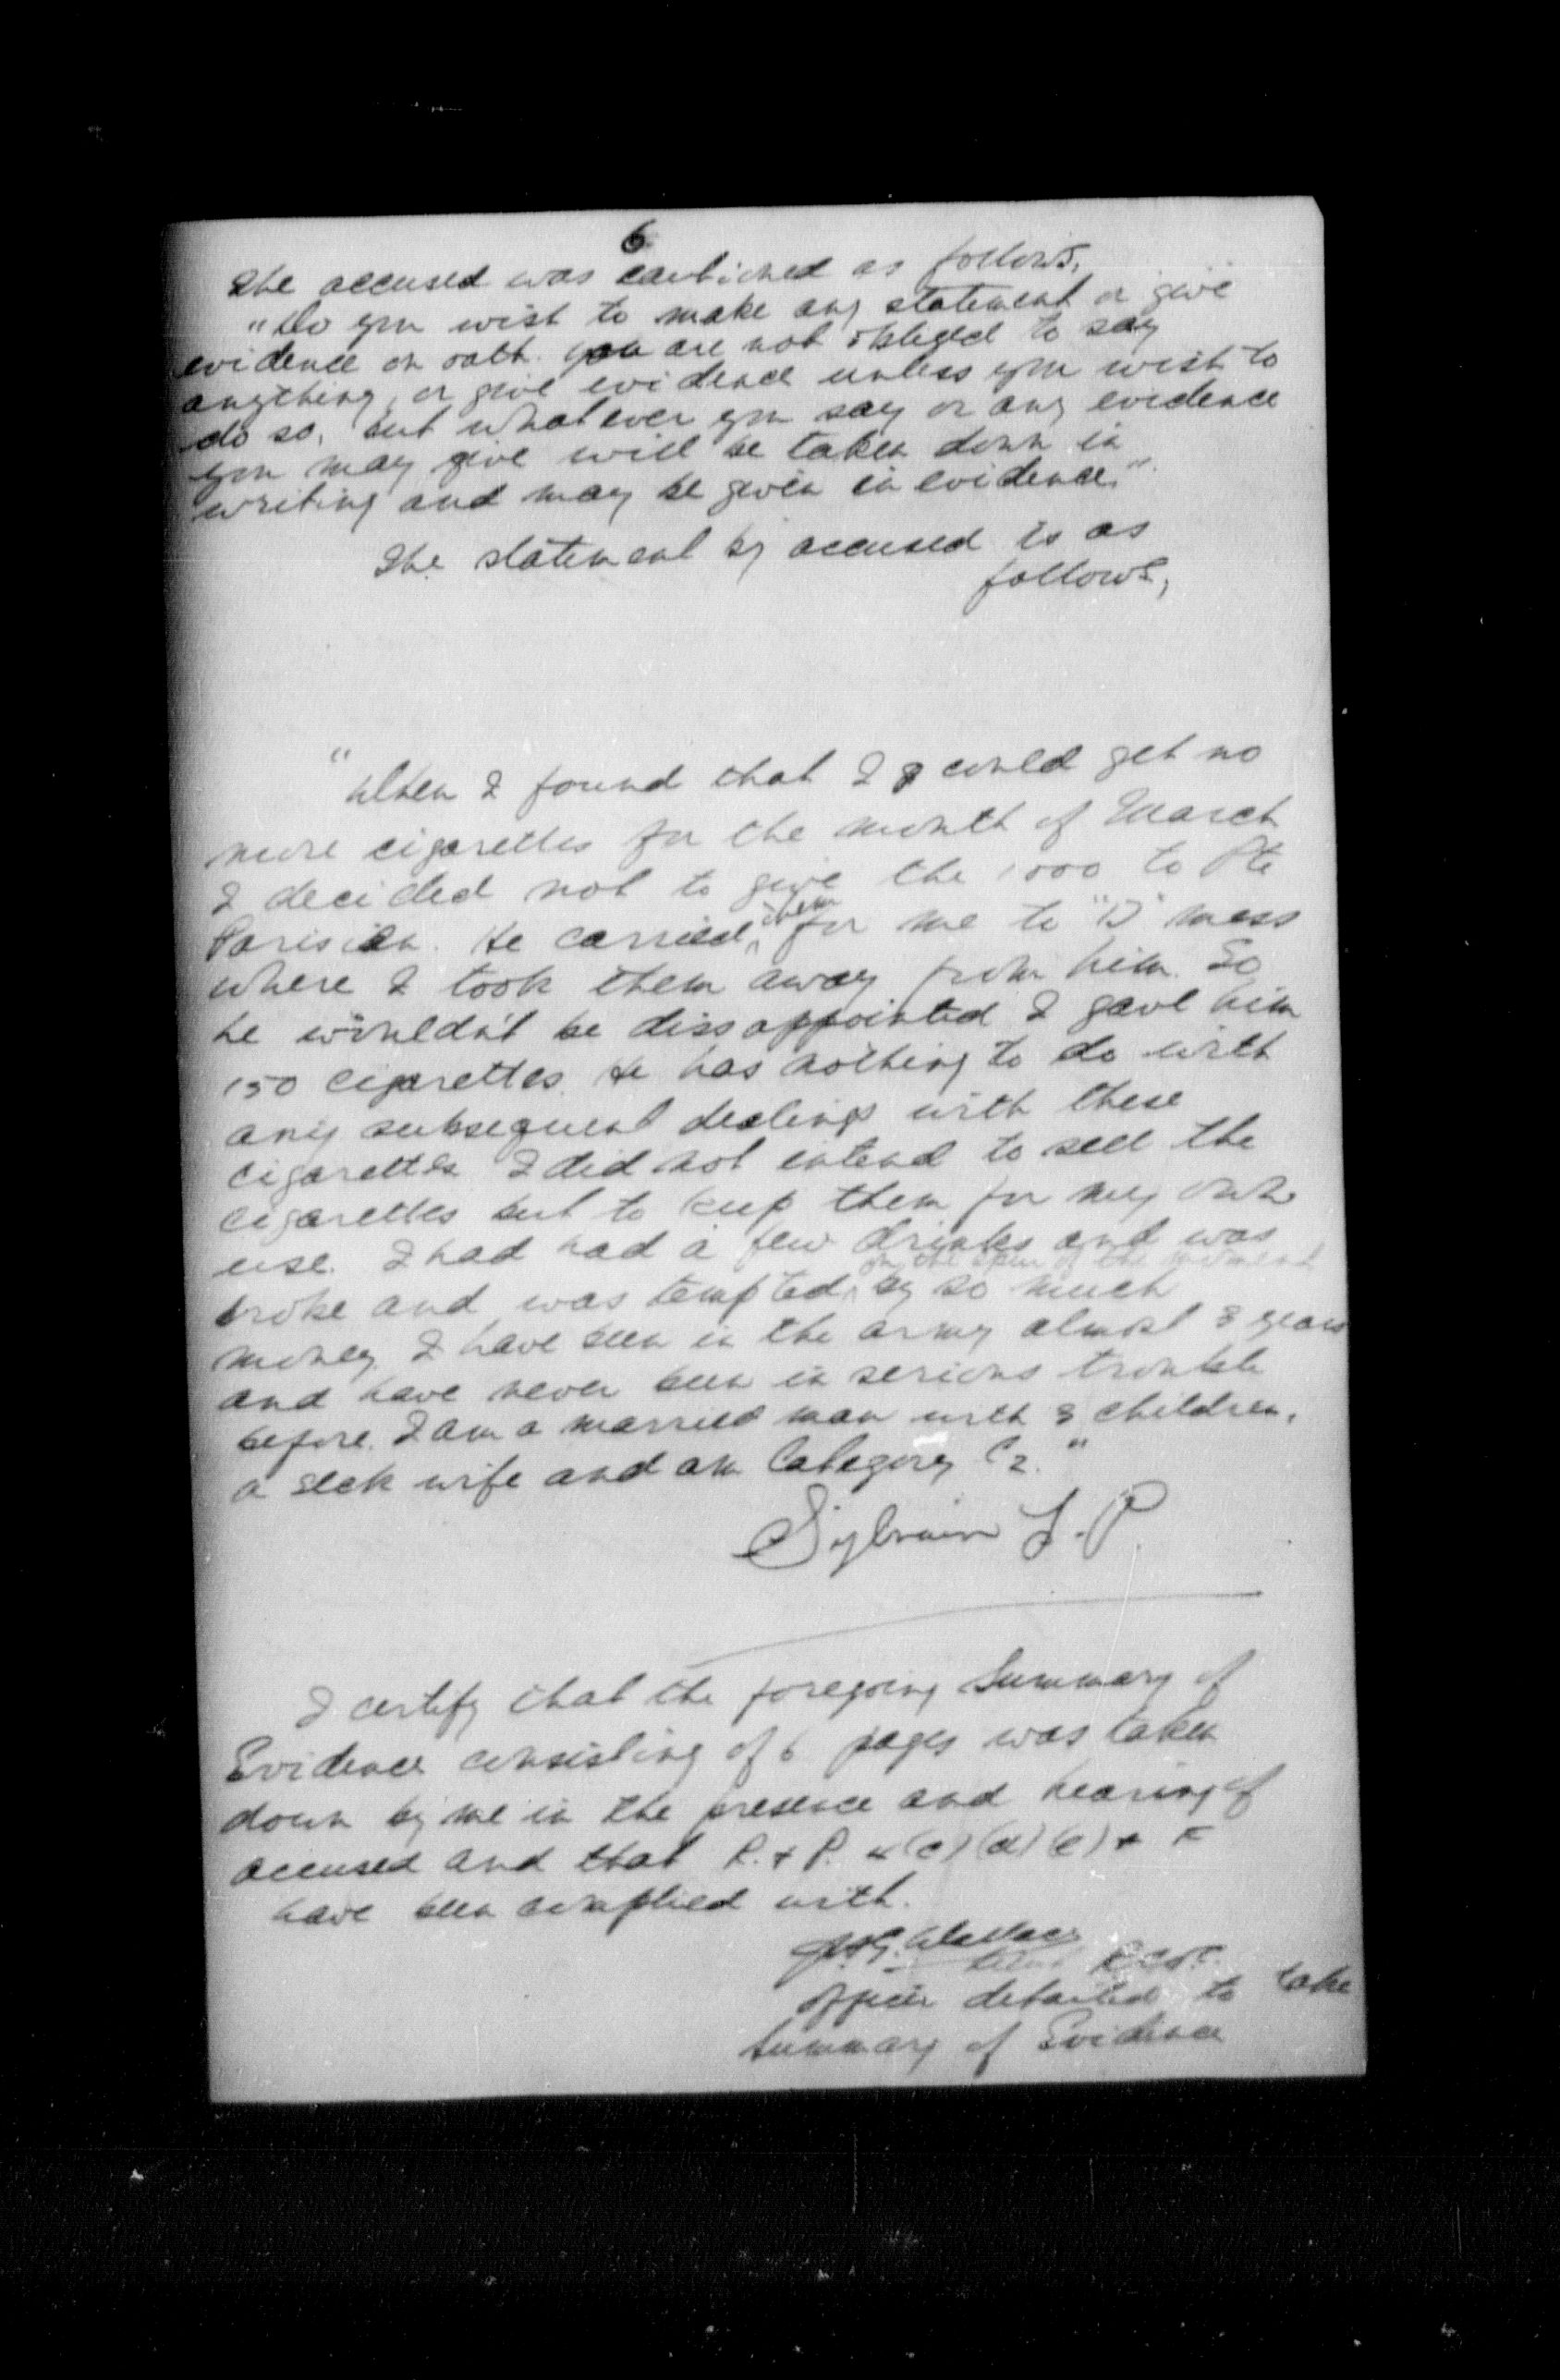 6
The accused was cautioned as follows,
"Do you wish to make any statement or give
evidence on oath. you are not obliged to say
anything, or give evidence unless you wish to
do so, but whatever you say or any evidence
you may give will be taken down in
writing and may be given in evidence."
The statement by accused is as
follows,
"When I found that I could get no
more cigarettes for the month of March
I decided not to give the 1000 to Pte
Parisien. He carried them for me to "D" mess
where I took them away from him. So
he wouldn't be dissappointed I gave him
150 cigarettes. He has nothing to do with
any subsequent dealings with these
cigarettes I did not intend to sell the
cigarettes but to keep them for my own
use. I had had a few drinks and was
broke and was tempted on the spur of the moment by so much
money. I have been in the army almost 3 years
and have never been in serious trouble
before. I am a married man with 3 children,
a sick wife and am Category C2."
Sylvain L. P.
I certify that the foregoing Summary of
Evidence consisting of 6 pages was taken
down by me in the presence and hearing of
accused and that R. + P. 4(c)(d)(e) + F
have been complied with.
Wallace
Officer detailed to take
Summary of Evidence